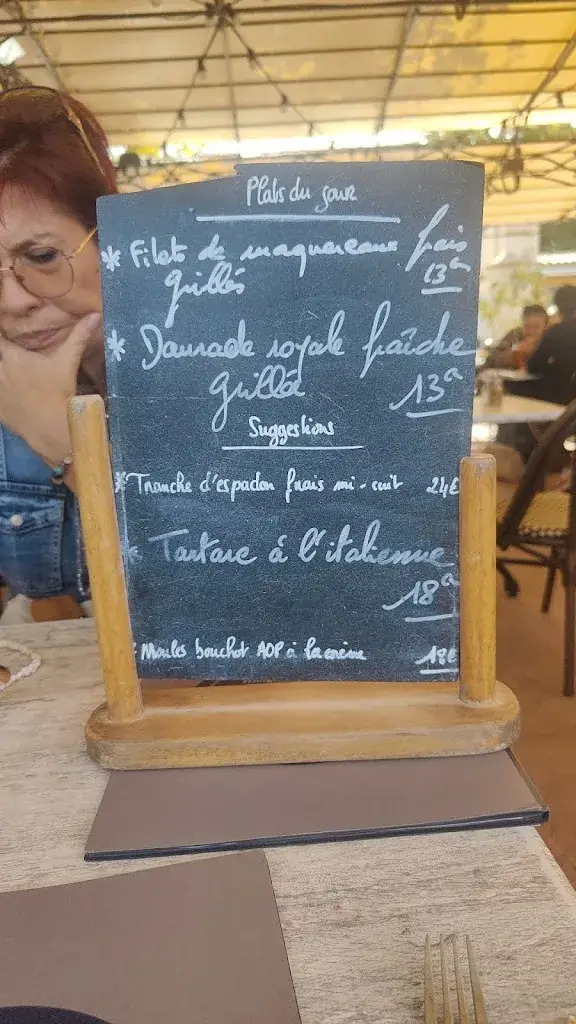 Plats du jour
* Filets de maquereaux frais
grillés 13€
* Daurade royale fraîche
grillée 13€
Suggestions
* Tranche d'espadon frais mi-cuit 24€
* Tartare à l'italienne
18€
* Moules bouchot AOP à la crème 18€